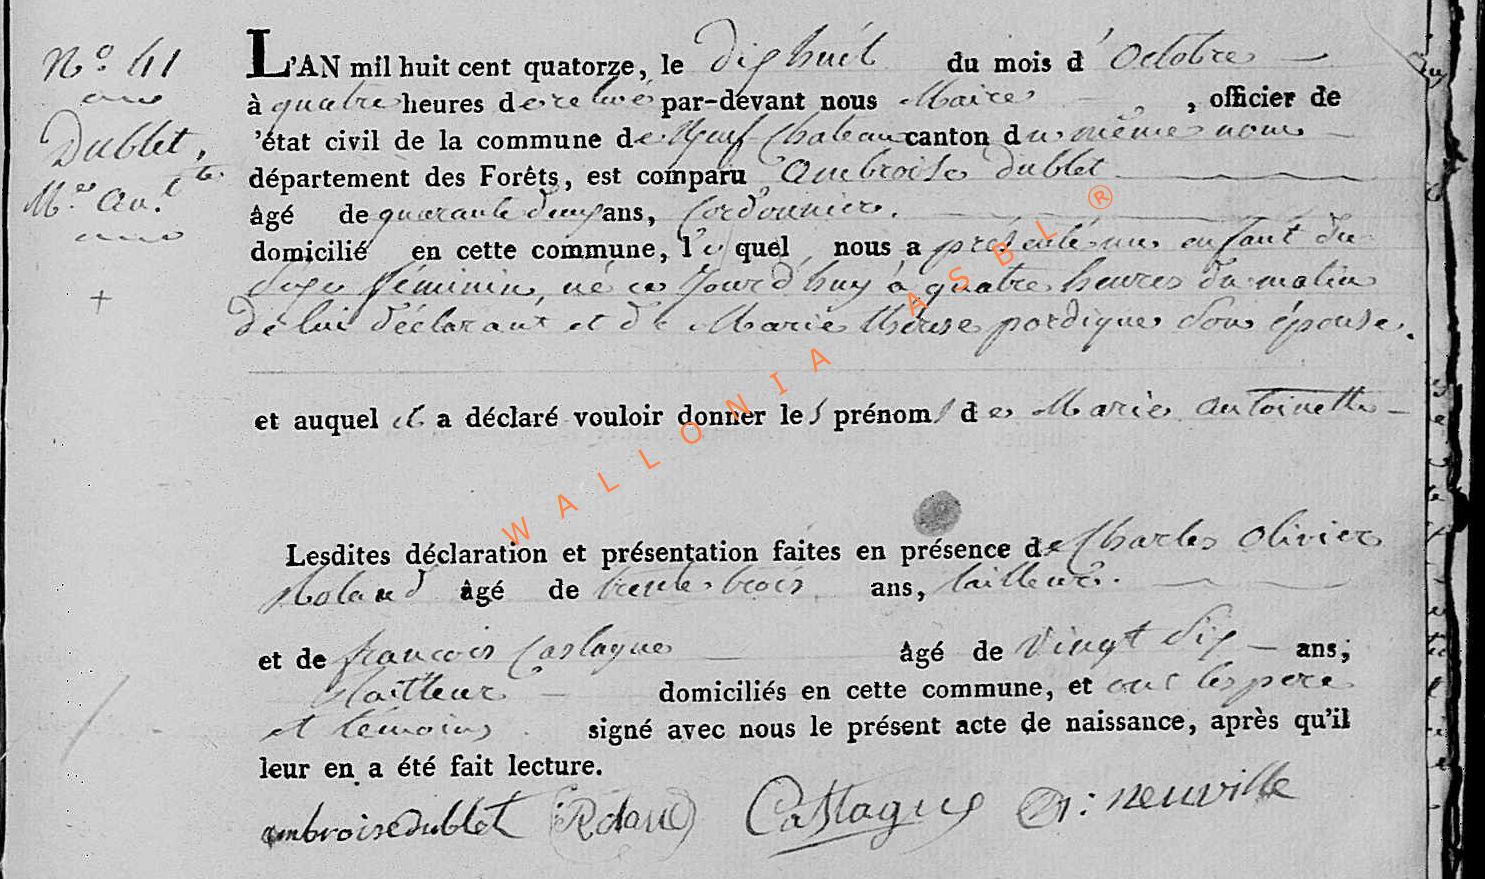 N.o 41
Dublet,
M.ie Ant.te
L'AN mil huit cent quatorze, le dix huit du mois d'Octobre
à quatre heures de relevé par-devant nous Maire, officier de
'état civil de la commune de Neuf-Chateau canton du même nom
département des Forêts, est comparu Ambroise Dublet
âgé de quarante deux ans, Cordonnier.
domicilié en cette commune, lequel nous a presenté un enfant du
sexe féminin, né ce jourd'huy à quatre heures du matin
de lui déclarant et de Marie Thérese pordique son épouse.
et auquel il a déclaré vouloir donner les prénoms de Marie antoinette
Lesdites déclaration et présentation faites en présence de Charles Olivier
Roland âgé de trente trois ans, tailleur.
et de françois Castagne âgé de vingt six ans;
domiciliés en cette commune, et ont les pere
et témoins signé avec nous le présent acte de naissance, après qu'il
leur en a été fait lecture.
ambroise dublet Roland Castagne : neuville
WALLONIA ASBL ®